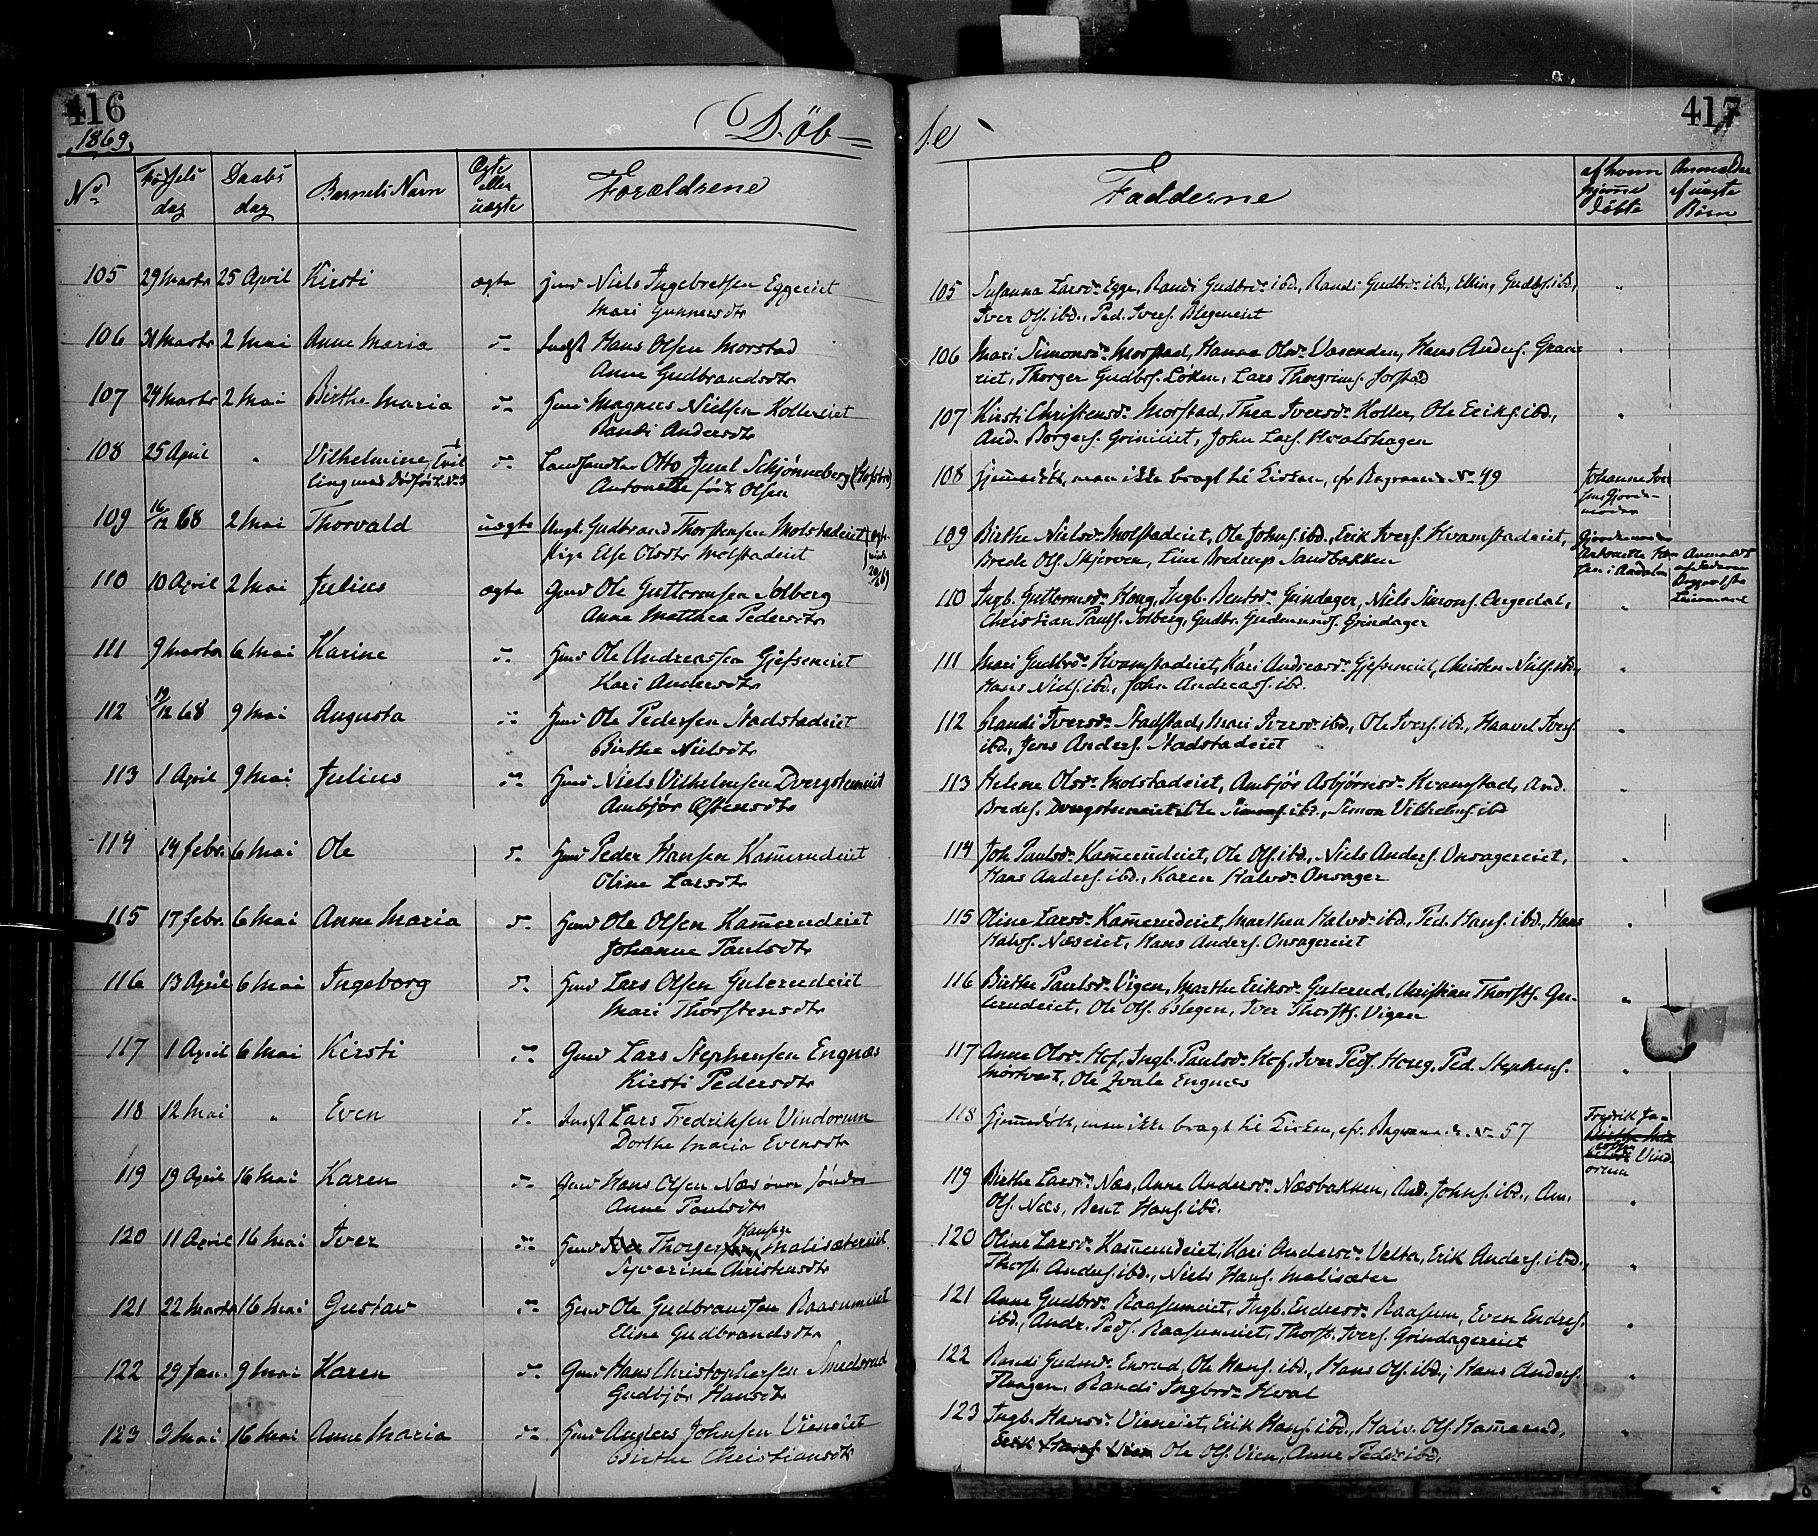 416
1869.
Döb-
No
Fødsels dag
Daabs dag
Barnets Navn
Ægte eller uægte
Forældrene
105 29 Marts 25 April Kirsti ægte Huusm Niels Ingebretsen Eggeeiet
Mari Gunnersdtr
106 31 Marts 2 Mai Anne Maria do Inds Hans Olsen Morstad
Anne Gudbrandsdtr
107 24 Marts 2 Mai Birthe Maria do Huusm Magnus Nielsen Kollereiet
Randi Andersdtr
108 25 April " Vilhelmine, Tvil- do Landhandler Otto Juul Schjønneberg (Hofsbro)
ling med Dødfødt No 3 Antonette født Olsen
109 16/12 68 2 Mai Thorvald uægte Ungk. Gudbrand Thorstensen Molstadeiet
Pige Else Olsdtr Molstadeiet
110 10 April 2 Mai Julius ægte Gmd Ole Guttormsen Solberg
Anne Mathea Pedersdtr
111 9 Marts 6 Mai Karine do Huusm Ole Andreassen Gjefseneiet
Kari Andersdtr
112 19/12 68 9 Mai Augusta do Huusm Ole Pedersen Stadstadeiet
Birthe Nielsdtr
113 1 April 9 Mai Julius do Huusm Niels Vilhelmsen Dvergsteneiet
Ambjør Østensdtr
114 14 febr. 6 Mai Ole do Huusm Peder Hansen Kamerudeiet
Oline Larsdtr
115 17 febr. 6 Mai Anne Maria do Huusm Ole Olsen Kamerudeiet
Johanne Paulsdtr
116 13 April 6 Mai Ingeborg do Huusm Lars Olsen Gulerudeiet
Mari Thorstensdtr
117 1 April 6 Mai Kirsti do Gmd Lars Stephensen Engnæs
Kirsti Pedersdtr
118 12 Mai " Even do Inds Lars Fredriksen Vindorum
Dorthe Maria Evensdtr
119 19 April 16 Mai Karen do Gmd Hans Olsen Næs søndre
Anne Paulsdtr
120 11 April 16 Mai Iver do Huusm Thorger Hansen Malisætereiet
Syverine Christensdtr
121 22 Marts 16 Mai Gustav do Huusm Ole Gudbrandsen Raasumeiet
Eline Gudbrandsdtr
122 29 Jan. 9 Mai Karen do Gmd Hans Christophersen Smedsrud
Gudbjør Hansdtr
123 3 Mai 16 Mai Anne Maria do Huusm Anders Johnsen Vieneiet
Birthe Christiansdtr
417
te
Fadderne
af hvem hjemme døbte
Anmelder af uægte Børn
105 Susanna Larsdr Egge, Randi Gudbrdr ibd., Randi Gudbrdr ibd., Elling Gudbs. ibd.,
Iver Ols. ibd., Ped. Ivers. Blegeneiet
106 Mari Simonsdr Morstad, Hanna Olsdr Vasenden, Hans Anders. Graner-
eiet, Thorger Gudbs. Løken, Lars Thorgrims. Jorstad
107 Kirsti Christensdr Morstad, Thea Iversdr Koller, Ole Eriks. ibd.,
And. Borgers. Grinieiet, John Lars. Hvalshagen
108 Hjemmedøbt, men ikke bragt til Kirken, cfr. Begravede No 49 Johanne Iver-
109 Birthe Nielsdr Molstadeiet, Ole Johns. ibd., Erik Ivers. Kvamstadeiet,
Brede Ols. Skjerven, Eline Bredesdr Sandbakken
110 Ingb. Guttormsdr Houg, Ingb. Bentsdr Grindager, Niels Simons. Aagedal,
Christian Pauls. Solberg, Gudbr. Gudmunds. Grindager
111 Mari Gudbrdr Kvamstadeiet, Kari Andreasdr Gjefseneiet, Christen Niels. ibd.,
Hans Niels. ibd., John Andreas. ibd.
112 Randi Iversdr Stadstad, Mari Iversdr ibd., Ole Ivers. ibd., Haavel Ivers.
ibd., Jens Anders. Stadstadeiet
113 Helene Olsdr Molstadeiet, Ambjør Asbjørnsdr Kvamstad, And.
Bredes. Dvergsteneiet, Ole Simons. ibd., Simon Vilhelms. ibd
114 Joh. Paulsdr Kamerudeiet, Ole Ols. ibd., Niels Anders. Onsagereiet,
Hans Anders. ibd., Karen Halvdr Onsager
115 Oline Larsdr Kamerudeiet, Marthea Halvdr ibd., Ped. Hans. ibd., Hans
Halvs. Næseiet, Hans Anders. Onsagereiet
116 Birthe Paulsdr Vigen, Marthe Eriksdr Gulerud, Christian Thorsts. Gu-
lerudeiet, Ole Ols. Blegen, Iver Thorsts. Vigen
117 Anne Olsdr Hof, Ingb. Paulsdr Hof, Iver Peds. Houg, Ped. Stephens.
Mortvedt, Ole Hvale Engnæs
118 Hjemmedøbt, men ikke bragt til Kirken, cfr. Begravede No 57 Fredrik Ja-
119 Birthe Larsdr Næs, Anne Andersdr Næsbakken, And. Johns. ibd., Am.
Ols. Næs, Bent Hans. ibd.
120 Oline Larsdr Kamerudeiet, Kari Andersdr Velta, Erik Anders. ibd.,
Thorst. Anders. ibd., Niels Hans. Malisæter
121 Anne Gudbrdr Raasumeiet, Ingb. Endresdr Raasum, Even Endres.
ibd., Andr. Peds. Raasumeiet, Thorst. Ivers. Grindagereiet
122 Randi Gudmdr Enrud, Ole Hans. ibd., Hans Ols. ibd., Hans Anders.
Haagen, Randi Ingbrdr Hval
123 Ingb. Hansdr Vieneiet, Erik Hans. ibd., Halv. Ols. Kamerud,
Ole Ols. Vien, Anne Pedsdr ibd.